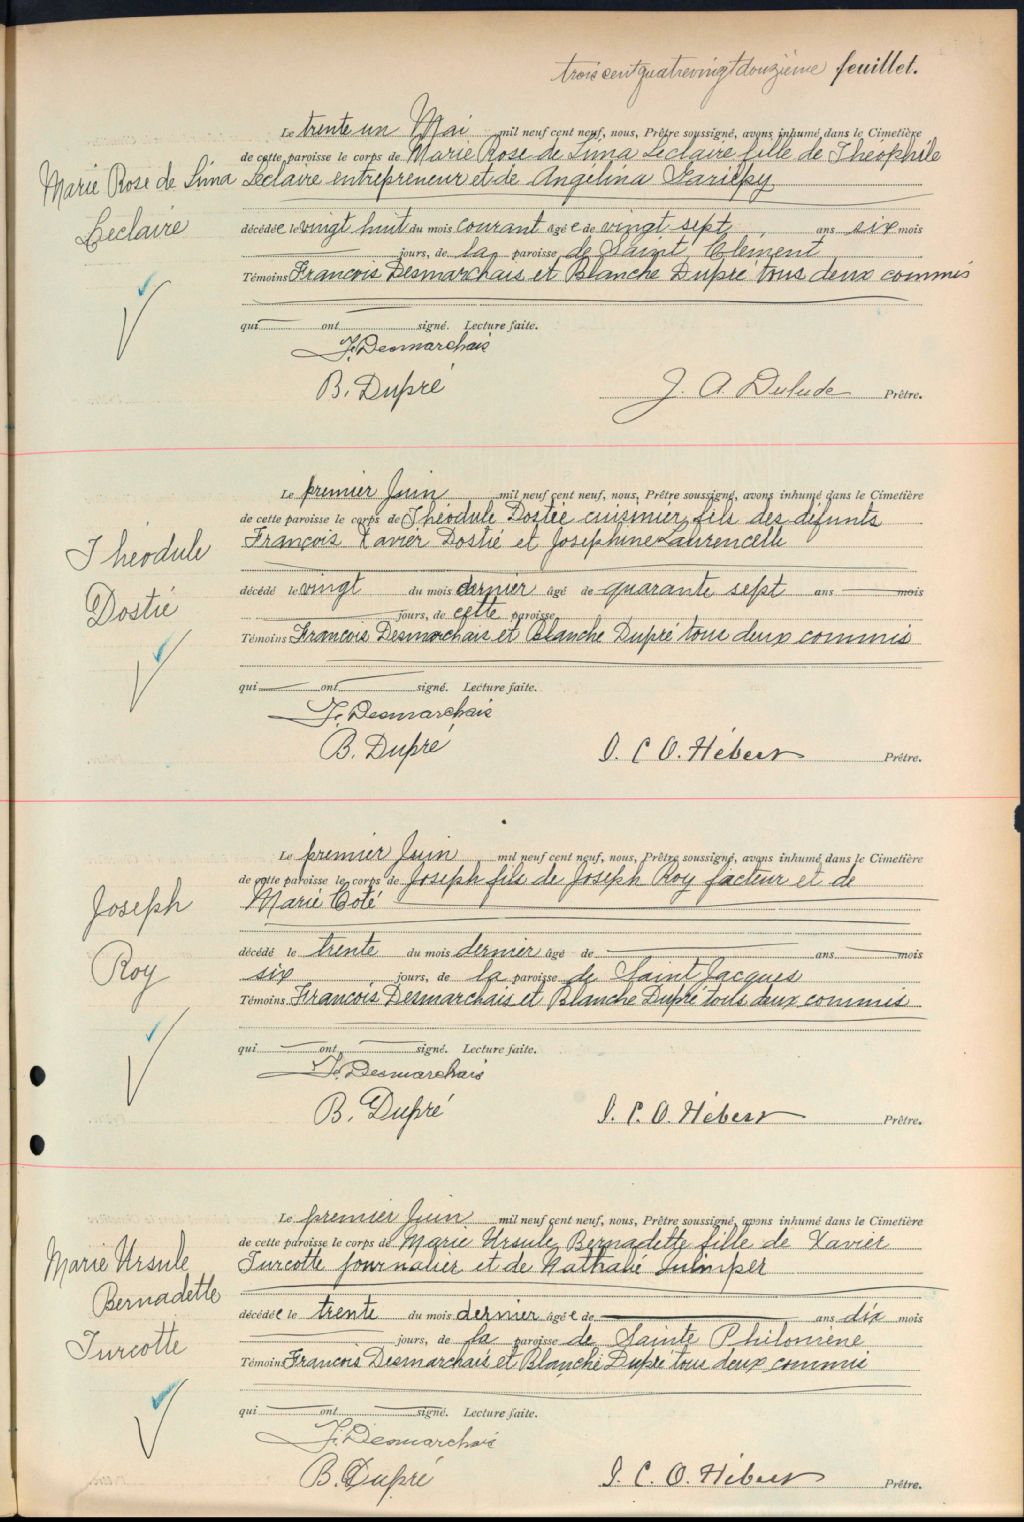 trois cent quatrevingt douzième feuillet.
Le trente un Mai mil neuf cent neuf, nous, Prêtre soussigné, avons inhumé dans le Cimetière
de cette paroisse le corps de Marie Rose de Lima Leclaire fille de Théophile
Marie Rose de Lima
Leclaire
Leclaire entrepreneur et de Angélina Gariépy
décédée le vingt huit du mois courant âgée de vingt sept ans six mois
jours, de la paroisse de Saint Clément
Témoins François Desmarchais et Blanche Dupré tous deux commis
qui ont signé. Lecture faite.
F. Desmarchais
B. Dupré
J. A. Dulude Prêtre.
Le premier Juin mil neuf cent neuf, nous, Prêtre soussigné, avons inhumé dans le Cimetière
de cette paroisse le corps de Théodule Dostie cuisinier, fils des défunts
Théodule
Dostié
François Xavier Dostié et Josephine Laurencelle
décédé le vingt du mois dernier âgé de quarante sept ans mois
jours, de cette paroisse
Témoins François Desmarchais et Blanche Dupré tous deux commis
qui ont signé. Lecture faite.
F. Desmarchais
B. Dupré
Hébert Prêtre.
Le premier Juin mil neuf cent neuf, nous, Prêtre soussigné, avons inhumé dans le Cimetière
de cette paroisse le corps de Joseph fils de Joseph Roy facteur et de
Joseph
Roy
Marie Coté
décédé le trente du mois dernier âgé de ans mois
six jours, de la paroisse de Saint Jacques
Témoins François Desmarchais et Blanche Dupré tous deux commis
qui ont signé. Lecture faite.
F. Desmarchais
B. Dupré
Hébert Prêtre.
Le premier Juin mil neuf cent neuf, nous, Prêtre soussigné, avons inhumé dans le Cimetière
de cette paroisse le corps de Marie Ursule Bernadette fille de Xavier
Marie Ursule
Bernadette
Turcotte
Turcotte journalier et de Nathalie
décédée le trente du mois dernier âgée de ans dix mois
jours, de la paroisse de Sainte Philomène
Témoins François Desmarchais et Blanche Dupré tous deux commis
qui ont signé. Lecture faite.
F. Desmarchais
B. Dupré
Hébert Prêtre.